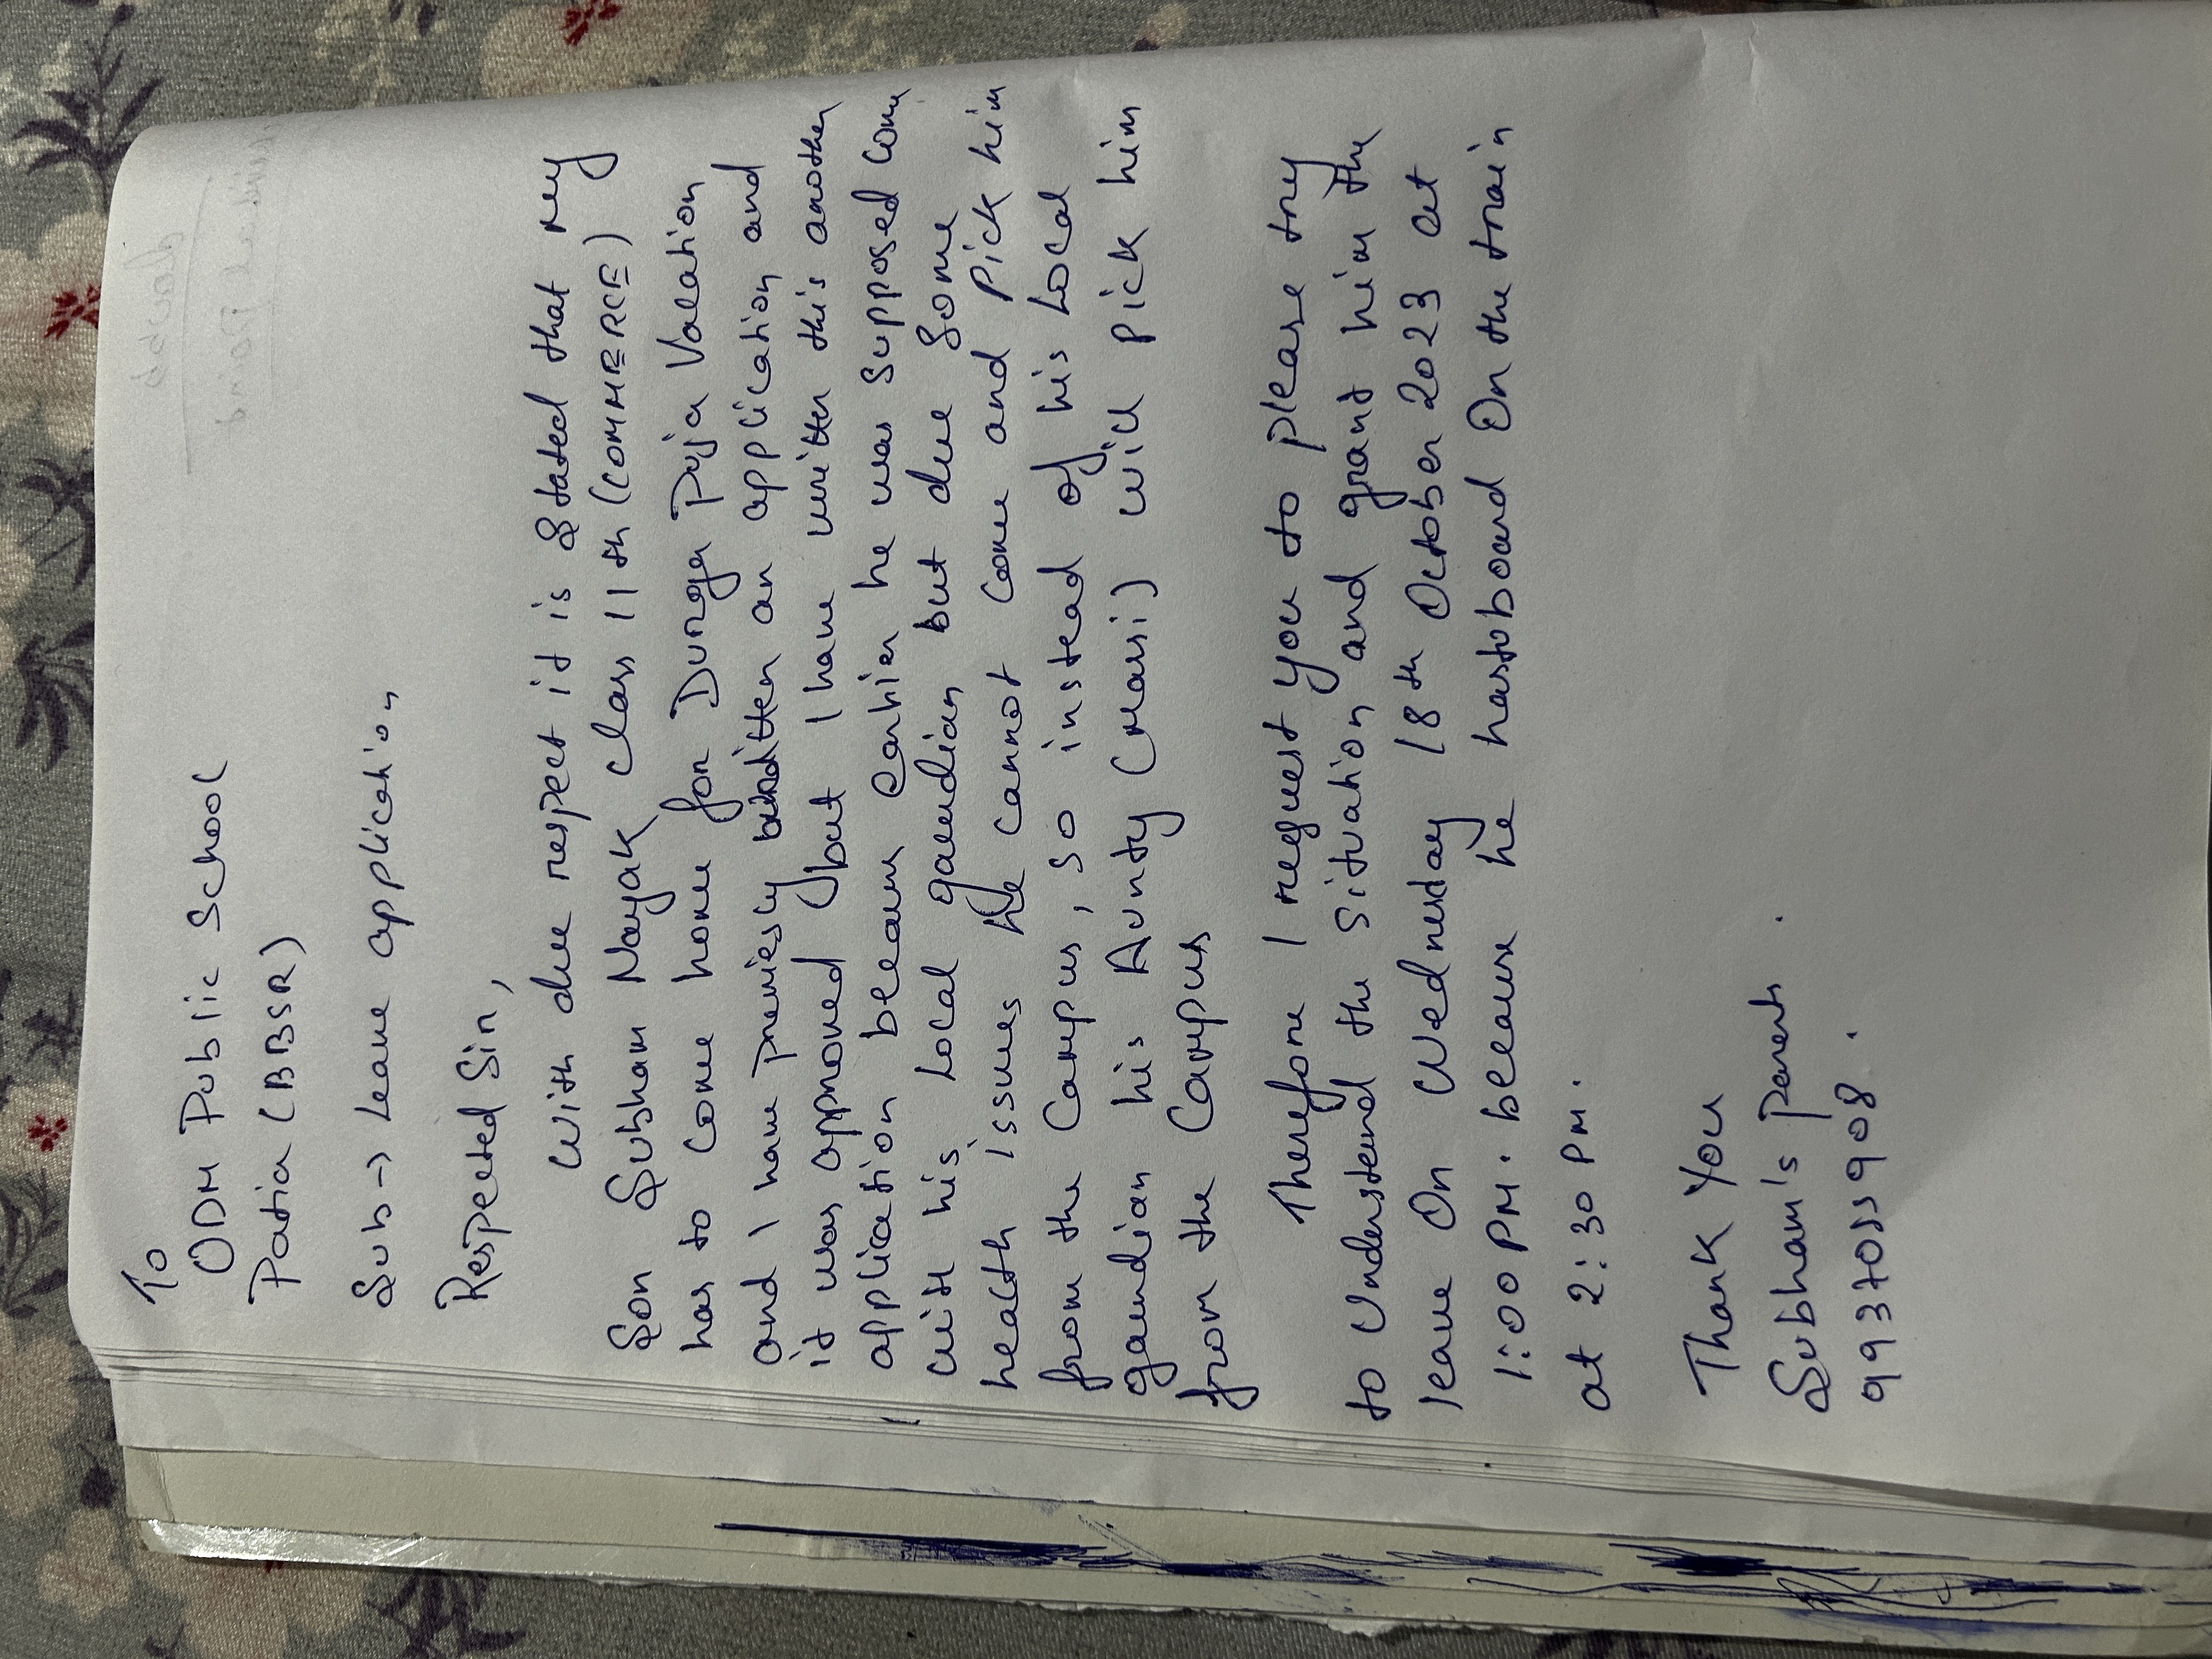 To
ODM Public School
Patia (BBSR)
Sub → Leave application,
Respected Sir,
With due respect it is stated that my
Son Subham Nayak class 11th (COMMERCE)
has to come home for Durga Puja Vacation
and I have previesly written an application and
it was approved but I have written this another
application because earlier he was supposed come
with his Local gaurdian but due some
health issues He cannot come and Pick him
from the Campus, so instead of his Local
gaurdian his Aunty (masi) will pick him
from the Campus
Therefore I request you to please try
to Understand the situation and grant him the
leave On Wednesday 18th October 2023 at
1:00 PM. because he hastoboard On the train
at 2:30 PM.
Thank You
Subham's Parents.